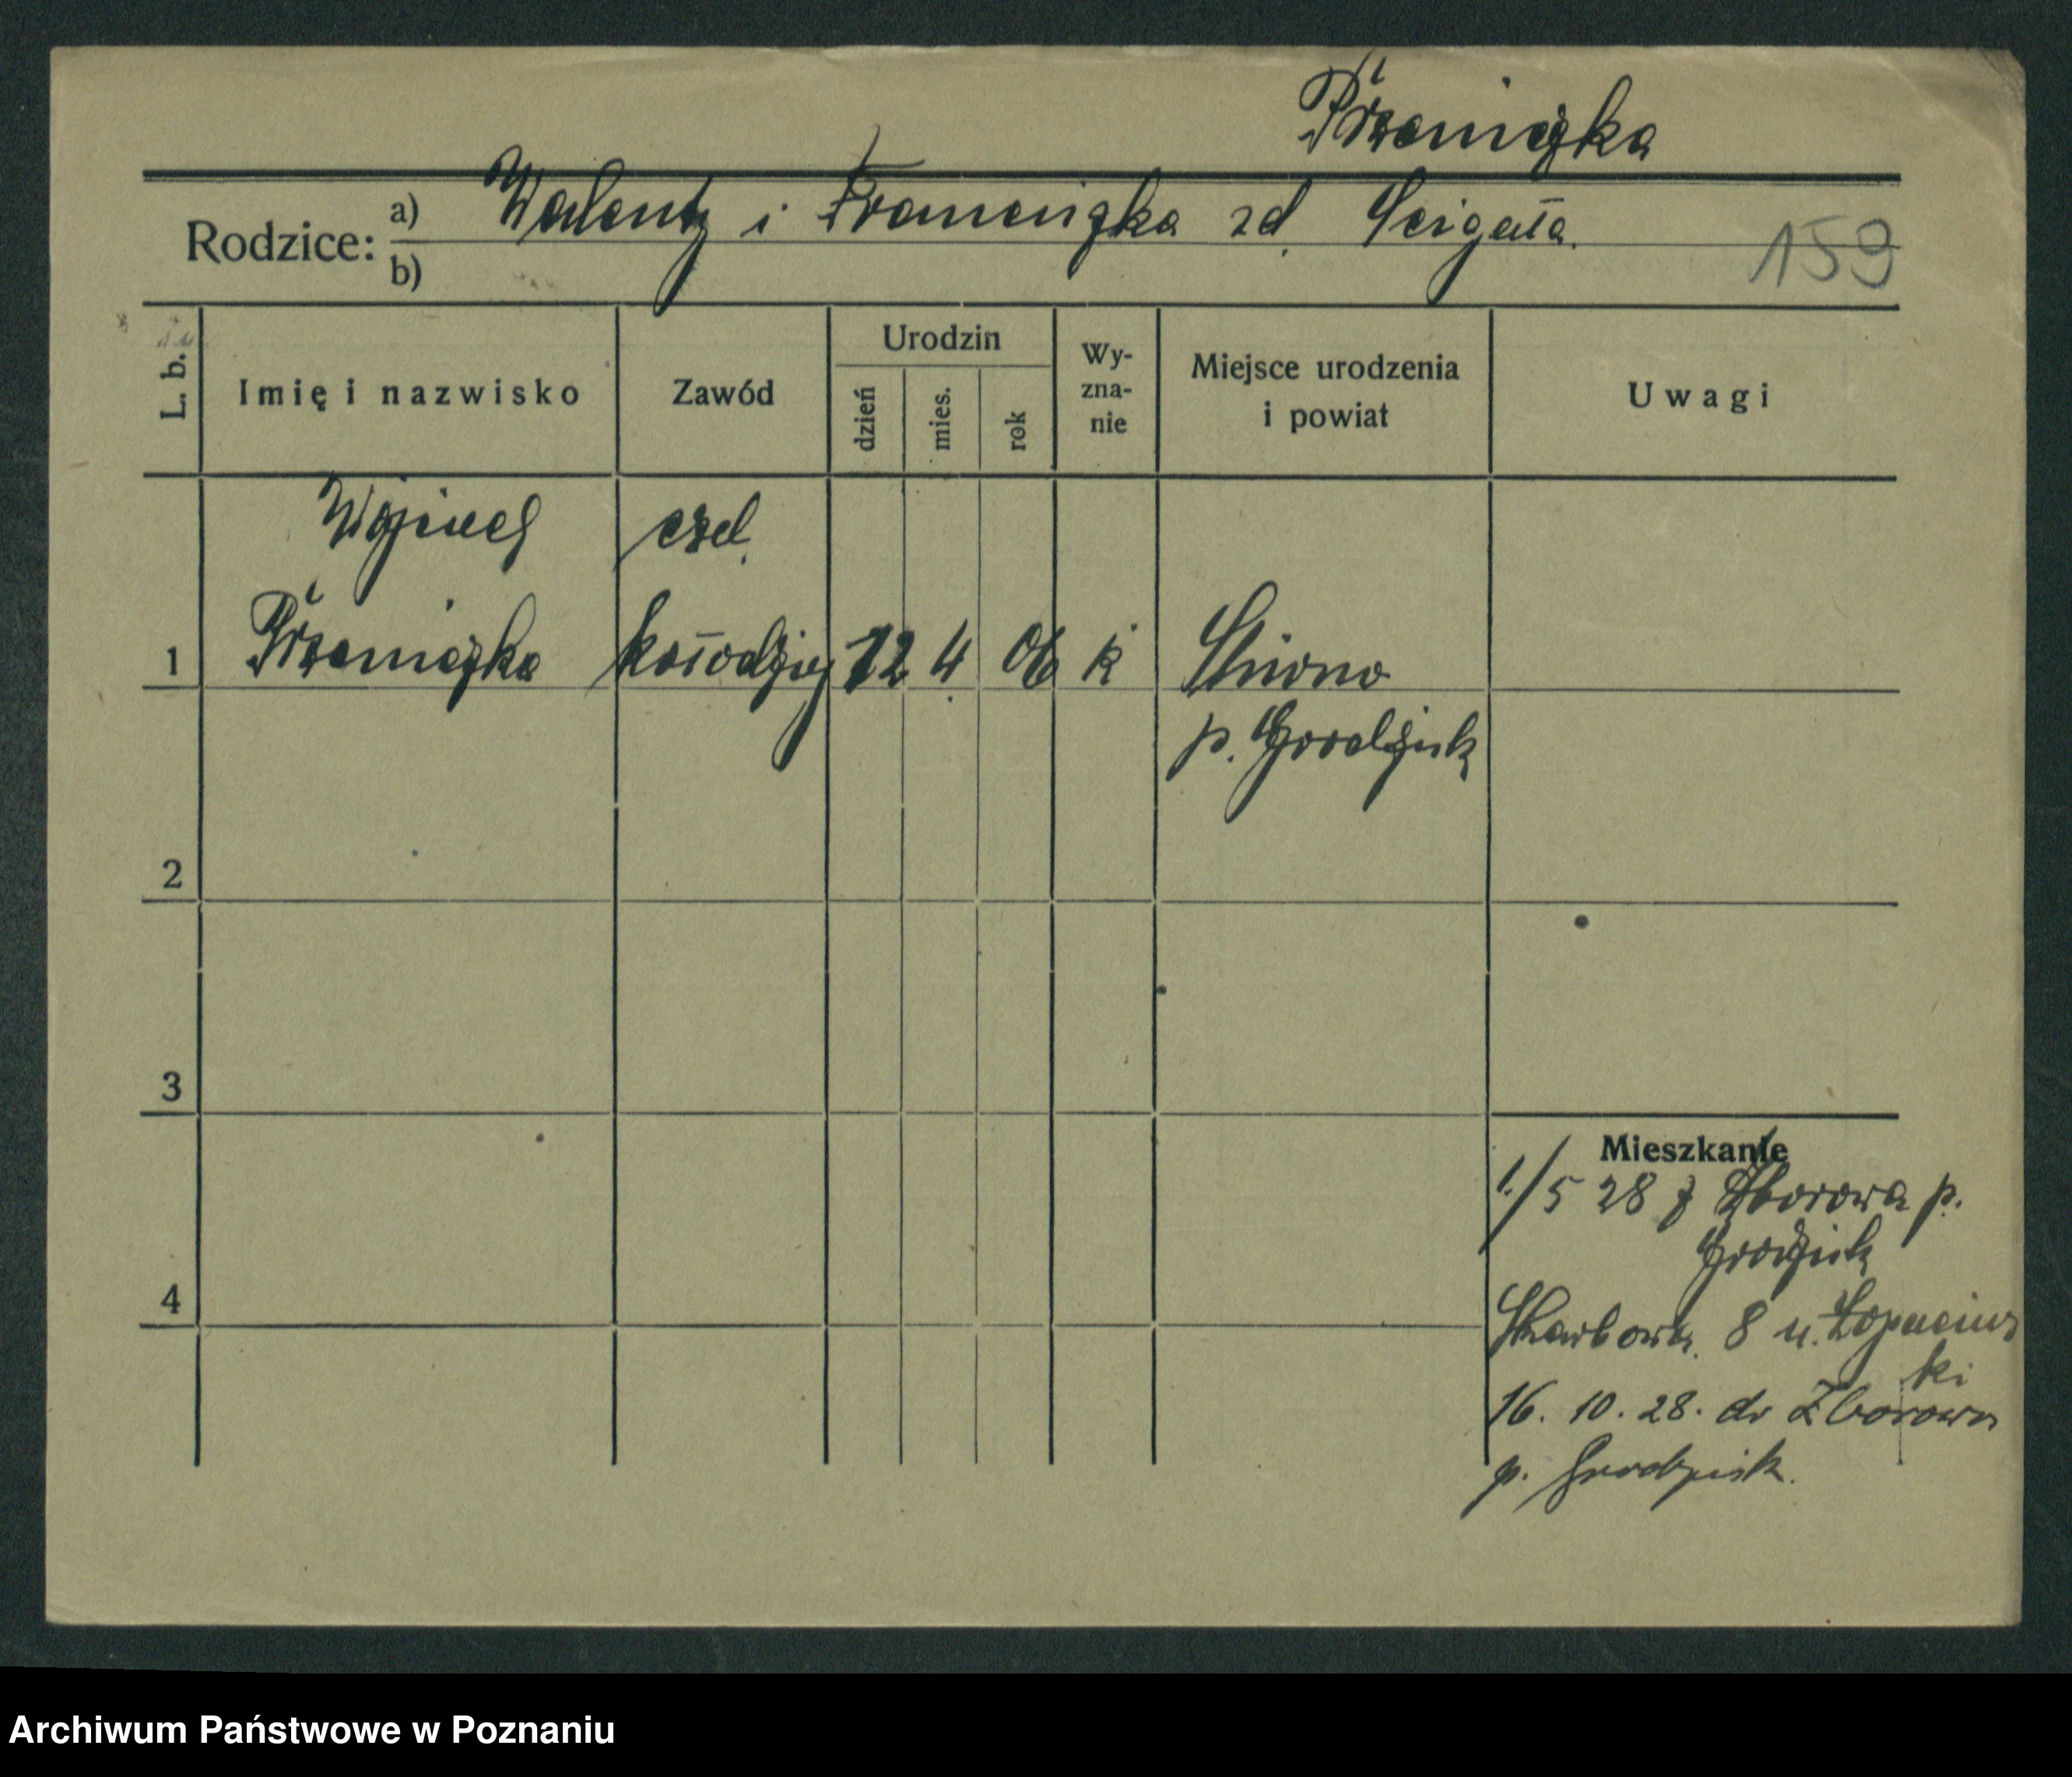 Prozaniczka
Rodzice: a) Walenty i Franciszka zd. Ścigała.
b)
159
L. b.
Imię i nazwisko
Zawód
Urodzin
dzień
mies.
rok
Wy-
zna-
nie
Miejsce urodzenia
i powiat
Uwagi
Wojciech czel.
1 kołodziej 12 4 06 k
p. Grodzisk
2
3
Mieszkanie
1./5 28 z Zborowa p.
Grodzisk
4
Skarbowa 8 u. Łopacińs
ki
16. 10. 28. do Zborowa
p. Grodzisk.
Archiwum Państwowe w Poznaniu